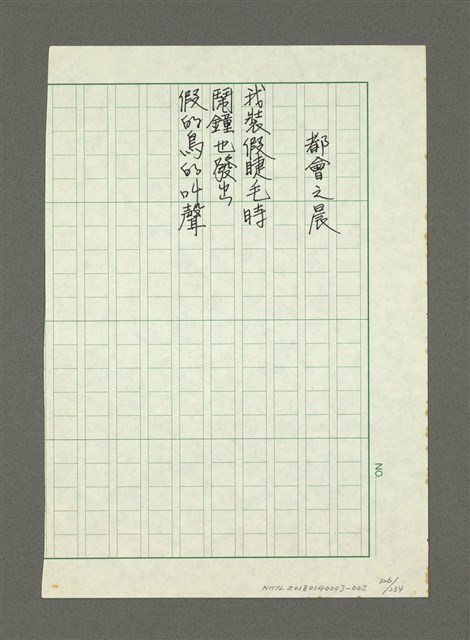 都會之晨
我裝假睫毛時
鬧鐘也發出
假的鳥的叫聲
NO.
NMTL20180140003-002
126/234